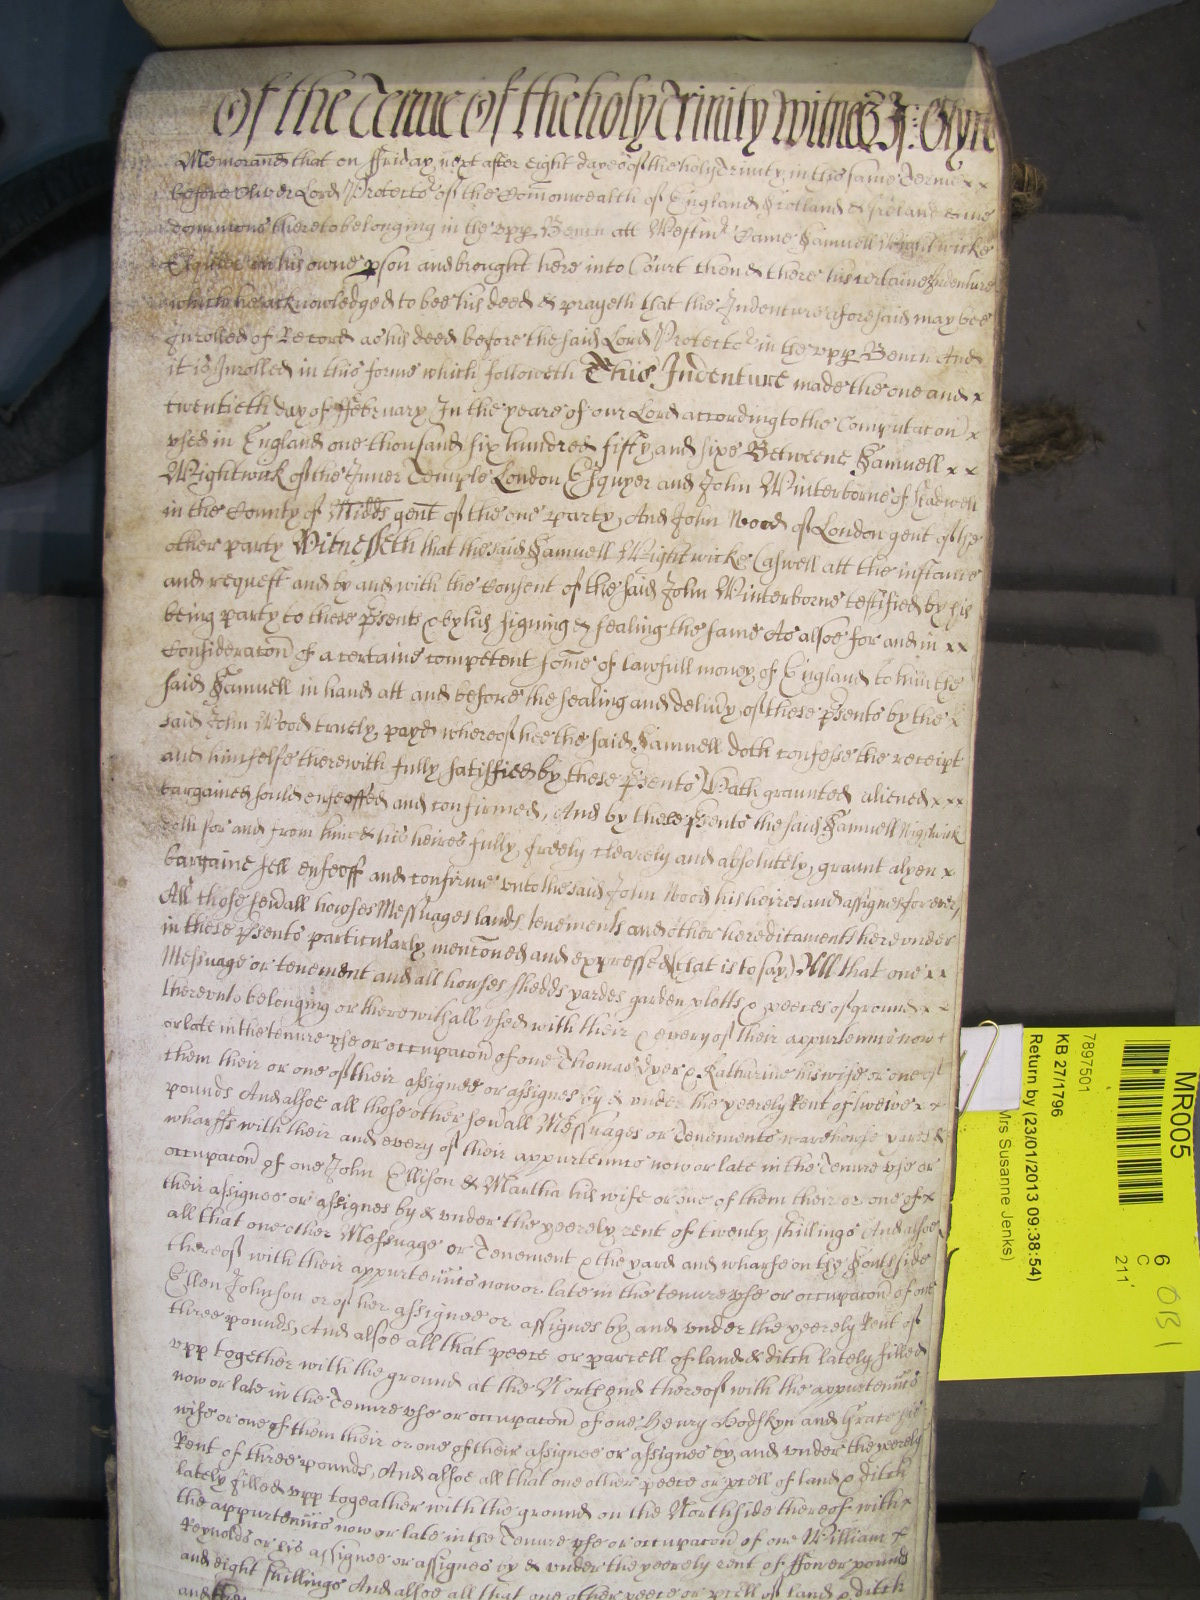 Of the Terme Of the holy Trinity Witnes Jo: Glynn
Memorand that on ffriday next after eight dayes of the holy Trinity in this same Terme x x
before Oliver Lord Protector of the Comonwealth of England Scotland & Ireland & the
dominions thereto belonging in the upp Bench att Westmr Came Samuell Wightwicke
Esquier in his owne pson and brought here into Court then & there his certaine Indenture
which he acknowledged to bee his deed & prayeth that the Indenture aforesaid may bee
Inrolled of Record as his deed before the said Lord Protector in the upp Bench And
it is Inrolled in this forme which followeth This Indenture made the one and x
twentieth day of ffebruary In the yeare of our Lord according to the Computacon x
used in England one thousand six hundred fifty and sixe Betweene Samuell x x
Wightwick of the Inner Temple London Esquyer and John Winterborne of
in the County of Midds gent of the one party, And John Wood of London gent of the
other party Witnesseth that the said Samuell Wightwicke Caswell att the instance
and request and by and with the Consent of the said John Winterborne testified by his
being party to these psents & by his signing & sealing the same As alsoe for and in x x
Consideracon of a certaine competent some of lawfull money of England to him the
said Samuell in hand att and before the sealing and delivy of these psents by the x
said John Wood truely payd whereof hee the said Samuell doth confesse the receipt
and himselfe therewith fully satisfied by these psents Hath graunted aliened x x x
bargained sould enfeoffed and confirmed, And by these psents the said Samuell Wightwick
doth for and from him & his heires fully, freely clearely and absolutely, graunt alyen x
bargaine sell enfeoff and confirme unto the said John Wood his heires and assignes for ever
All those sevall howses Messuages lands tenements and other hereditaments hereunder
in these psents particularly menconed and expressed (that is to say) All that one x x
Messuage or tenement and all houses shedds yardes garden plotts & peeces of ground x x
thereunto belonging or therewithall used with their & every of their appurtenncs now x
or late in the tenure use or occupacon of one Thomas Dyer & Katharine his wife or one of
them their or one of their assignee or assignes by & under the yeerely Rent of twelve x x
pounds And alsoe all those other sevall Messuages or Tenements warehouse yards &
wharffs with their and every of their appurtenncs now or late in the Tenure use or
occupacon of one John Ellison & Martha his wife or one of them their or one of x
their assignee or assignes by & under the yeerely rent of twenty shillings And alsoe
all that one other Messuage or Tenement & the yard and wharfe on the South side
thereof with their appurtenncs now or late in the tenure use or occupacon of one
Ellen Johnson or of her assignee or assignes by and under the yeerely Rent of
three pounds, And alsoe all that peece or parcell of land & ditch lately filled
upp together with the ground at the North end thereof with the appurtenncs
now or late in the Tenure use or occupacon of one Henry Hodskyn and Grace his
wife or one of them their or one of their assignee or assignes by and under the yeerely
Rent of three pounds, And alsoe all that one other peece or pcell of land & ditch
lately filled upp togeather with the ground on the North side thereof with x
the appurtenncs now or late in the Tenure use or occupacon of one William x
Reynolds or his assignee or assignes by & under the yeerely rent of ffower pounds
and eight shillings And alsoe all that one other peece or pcell of land & ditch
MR005
7897501
KB 27/1796
Return by (23/01/2013 09:38:54)
Mrs Susanne Jenks)
6
C
211'
0131